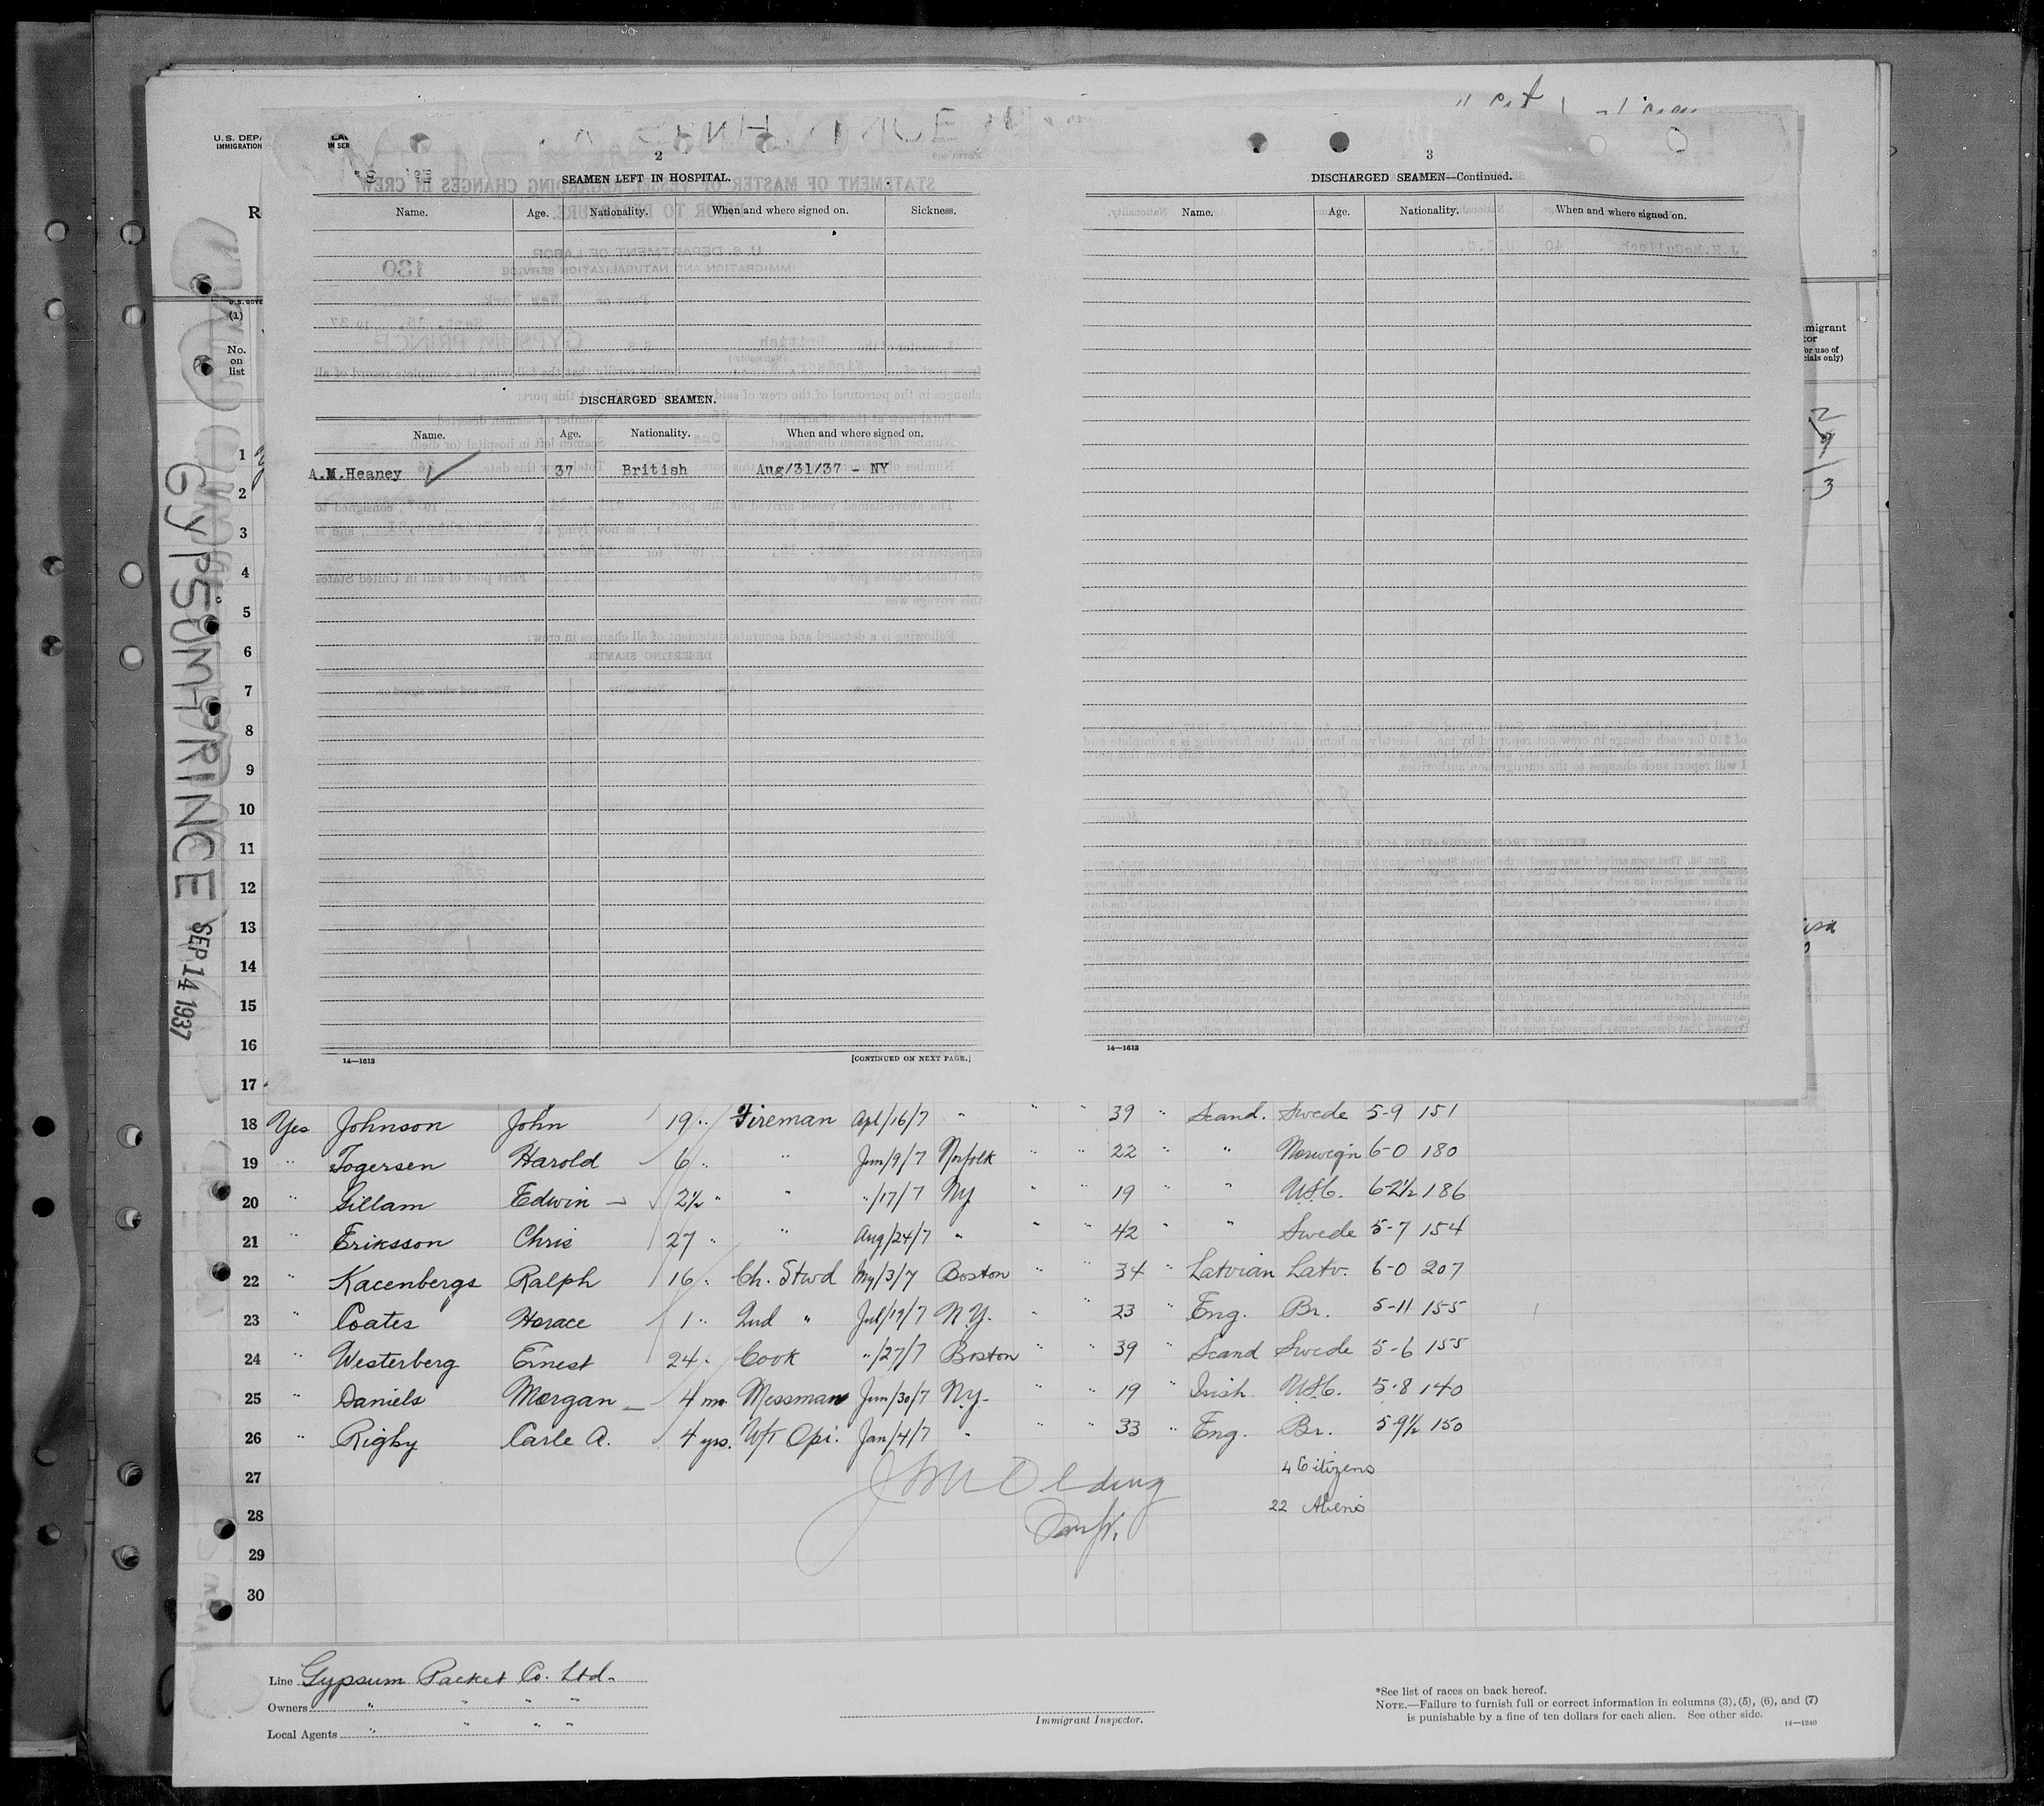 U.S. DEPA
IMMIGRATION
LA
N SER
R
U.S. GOVE
(1)
No.
on
list
2
SEAMEN LEFT IN HOSPITAL.
Name. Age. Nationality. When and where signed on. Sickness.
DISCHARGED SEAMEN.
Name. Age. Nationality. When and where signed on.
A.M.Heaney 37 British Aug/31/37 - NY
14—1613 [CONTINUED ON NEXT PAGE.]
3
DISCHARGED SEAMEN—Continued.
Name. Age. Nationality. When and where signed on.
14—1613
migrant
tor
or use of
cials only)
GYPSUM PRINCE SEP 14 1937
1
2
3
4
5
6
7
8
9
10
11
12
13
14
15
16
17
18 Yes Johnson John 19 " Fireman Apl/16/7 " " " 39 " Scand. Swede 5-9 151
19 " Togersen Harold 6 " " Jun/9/7 Norfolk " " 22 " " Norwegn 6-0 180
20 " Gillam Edwin 2½ " " "/17/7 NY " " 19 " " U.S.C. 6-2½ 186
21 " Eriksson Chris 27 " " Aug/24/7 " " " 42 " " Swede 5-7 154
22 " Kacenbergs Ralph 16 " Ch. Stwd My/3/7 Boston " " 34 " Latvian Latv. 6-0 207
23 " Coates Horace 1 " 2nd " Jul/19/7 N.Y. " " 23 " Eng. Br. 5-11 155
24 " Westerberg Ernest 24 " Cook "/27/7 Boston " " 39 " Scand Swede 5-6 155
25 " Daniels Morgan 4 mo. Messman Jun/30/7 N.Y. " " 19 " Irish. U.S.C. 5-8 140
26 " Rigby Carle A. 4 yrs. W/T Opr. Jan/4/7 " " " 33 " Eng. Br. 5-9½ 150
27 4 Citizens
28 22 Aliens
29
30
Line Gypsum Packet Co. Ltd.
Owners " " " "
Local Agents " " " "
Immigrant Inspector.
*See list of races on back hereof.
NOTE.—Failure to furnish full or correct information in columns (3), (5), (6), and (7)
is punishable by a fine of ten dollars for each alien. See other side.
14—1240